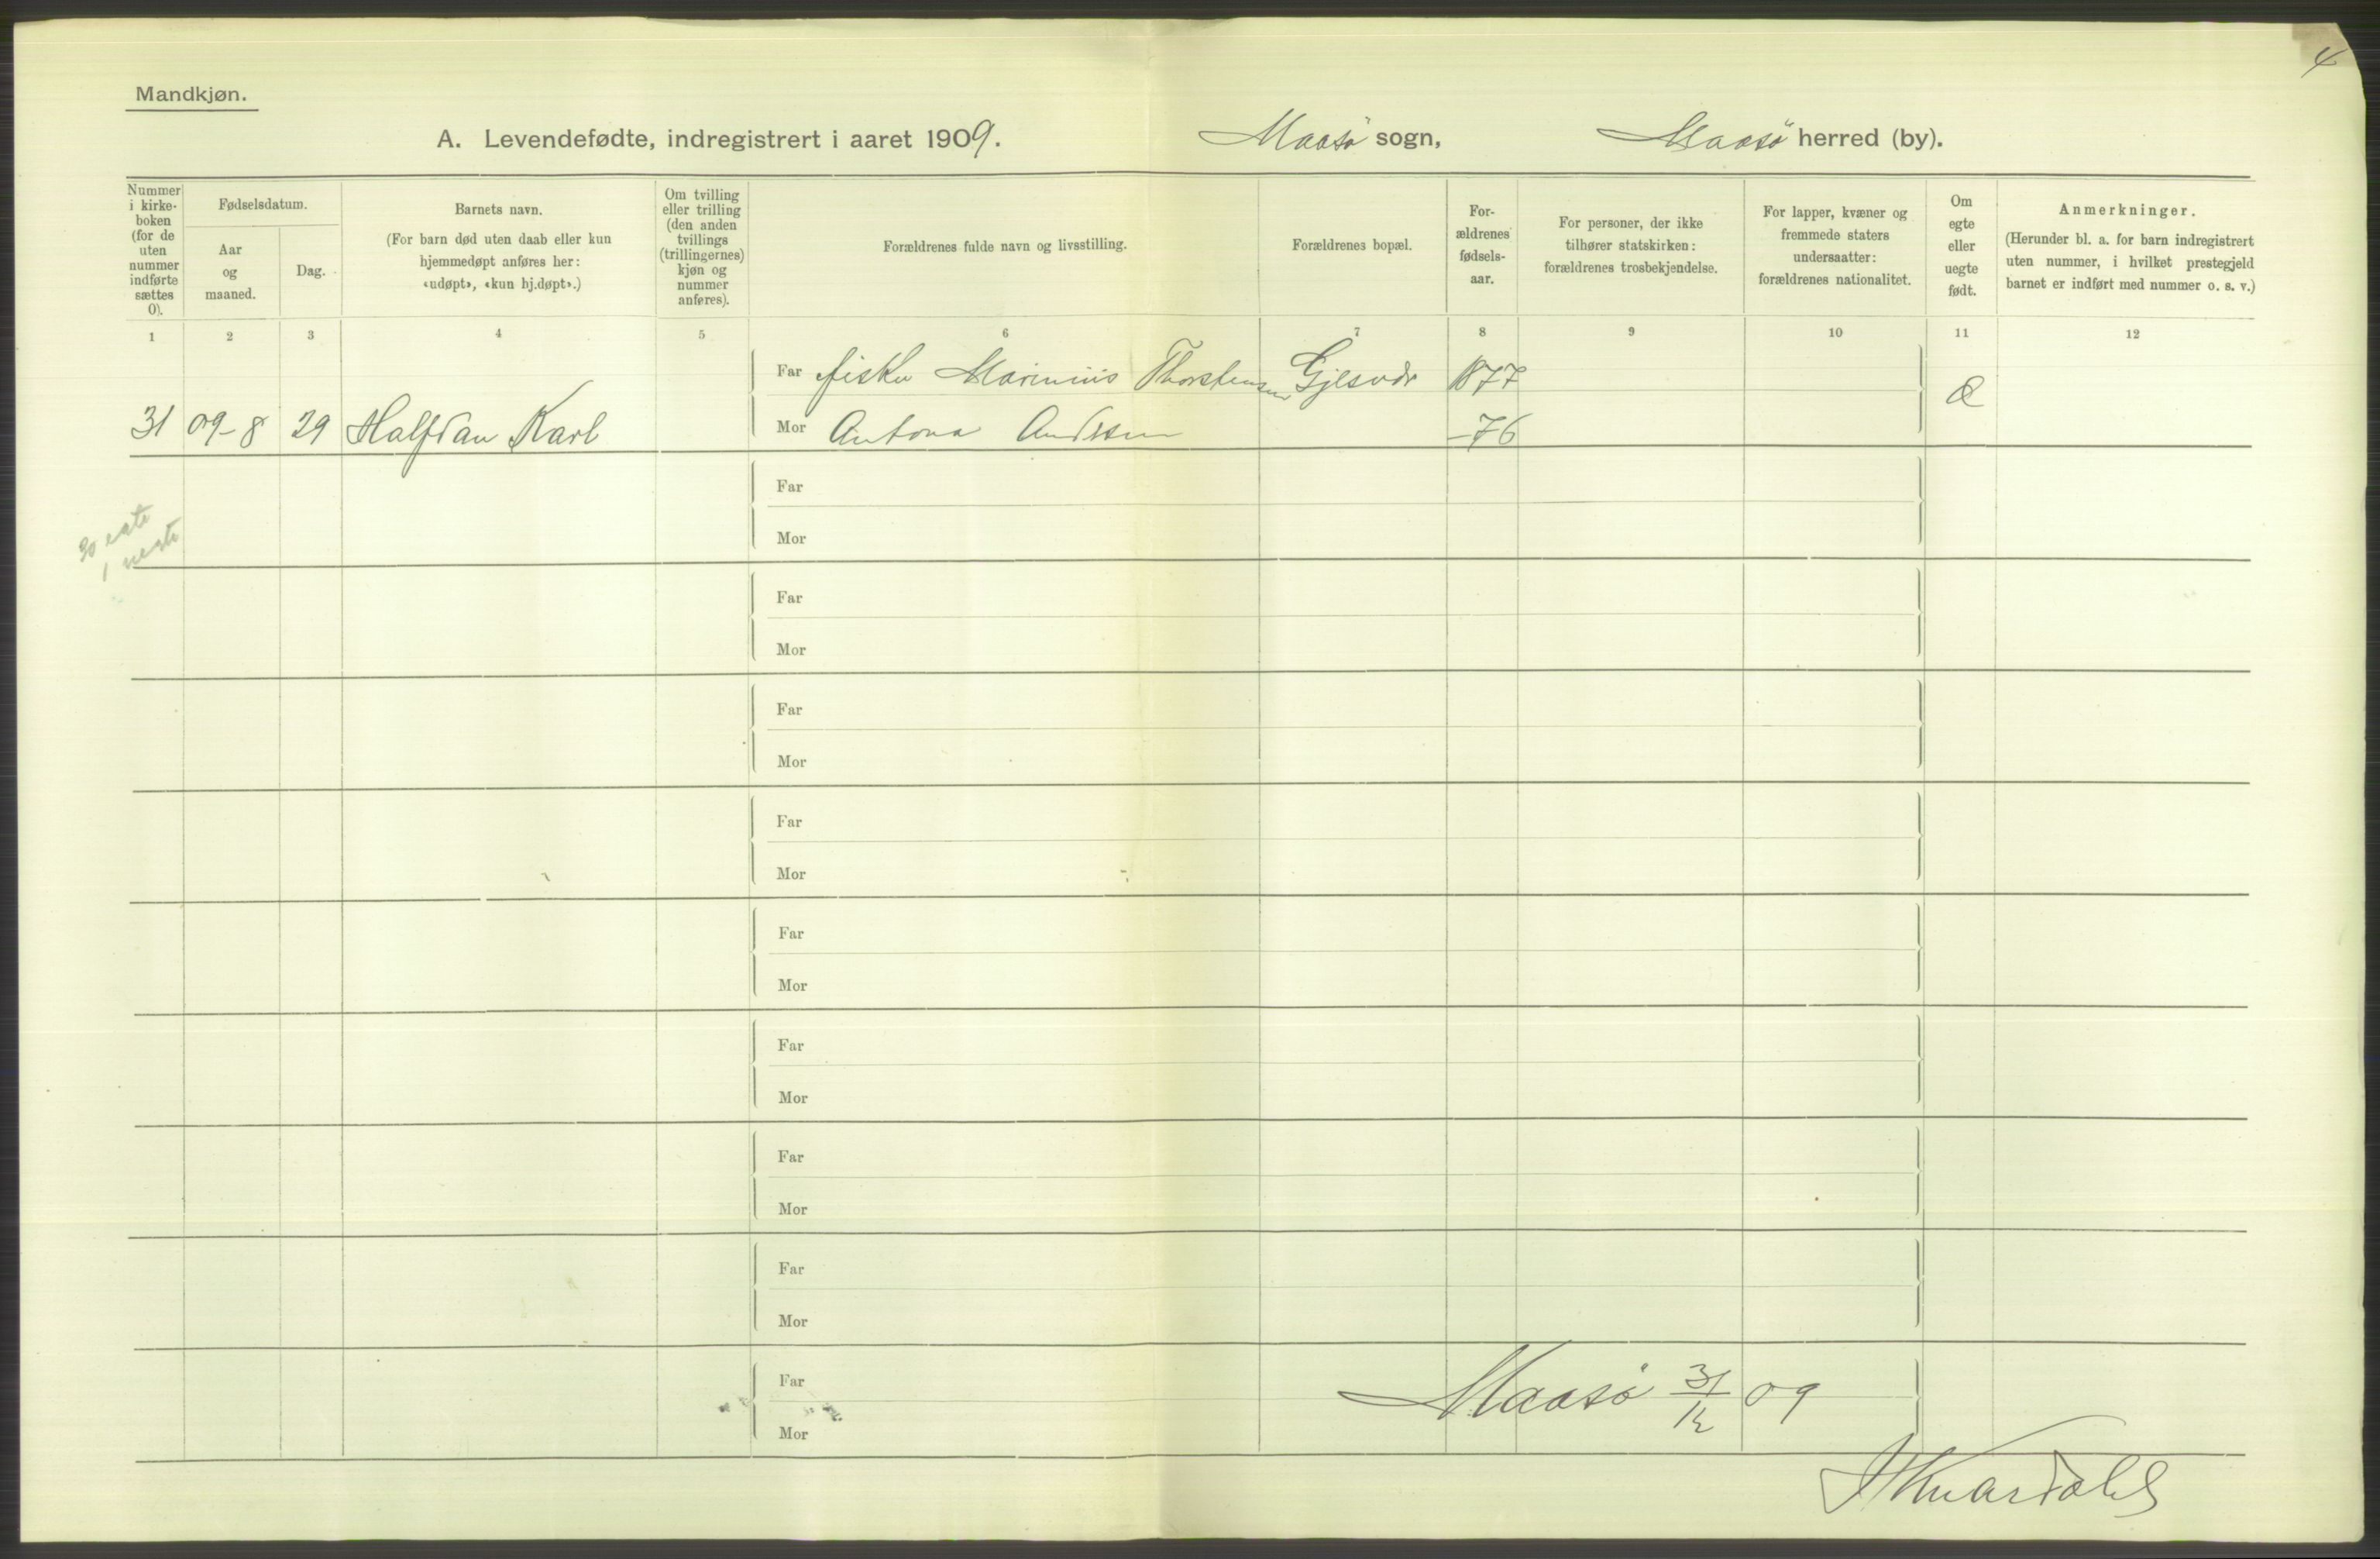 4
Mandkjøn.
A. Levendefødte, indregistrert i aaret 1909. Maasö sogn, Maasö herred (by).
Nummer i kirke-boken (for de uten nummer indførte sættes 0).
Fødselsdatum.
Aar og maaned.
Dag.
Barnets navn.
(For barn død uten daab eller kun hjemmedøpt anføres her: «udøpt», «kun hj.døpt».)
Om tvilling eller trilling (den anden tvillings (trillingernes) kjøn og nummer anføres).
Forældrenes fulde navn og livsstilling.
Forældrenes bopæl.
For-ældrenes fødsels-aar.
For personer, der ikke tilhører statskirken: forældrenes trosbekjendelse.
For lapper, kvæner og fremmede staters undersaatter: forældrenes nationalitet.
Om egte eller uegte født.
Anmerkninger.
(Herunder bl. a. for barn indregistrert uten nummer, i hvilket prestegjeld barnet er indført med nummer o. s. v.)
1 2 3 4 5 6 7 8 9 10 11 12
Far fisker Marinius Thorstensen Gjesvær 1877
31 09-8 29 Halfdan Karl Mor Antona Andersen -76 Æ
Far
30 egte
Mor
1 uegte
Far
Mor
Far
Mor
Far
Mor
Far
Mor
Far
Mor
Far
Mor
Far
Mor
Far
Maasö 31/12 09
Mor